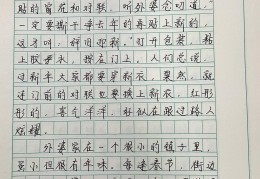 贴的窗花和对联,听外婆念叨道,"
一定要撕干净去年的再贴上新的,
这才叫,辞旧迎新。"打开包装,粘
上胶要衣,按在门上,人们总说,
过新年大家都要穿新衣,果然,就
连门前的对联也要换上新衣,红彤
彤的,喜气洋洋,好似在跟过路人
炫耀。
外婆家在一个很小的镇子里,
虽小但很有年味。每逢春节,街边